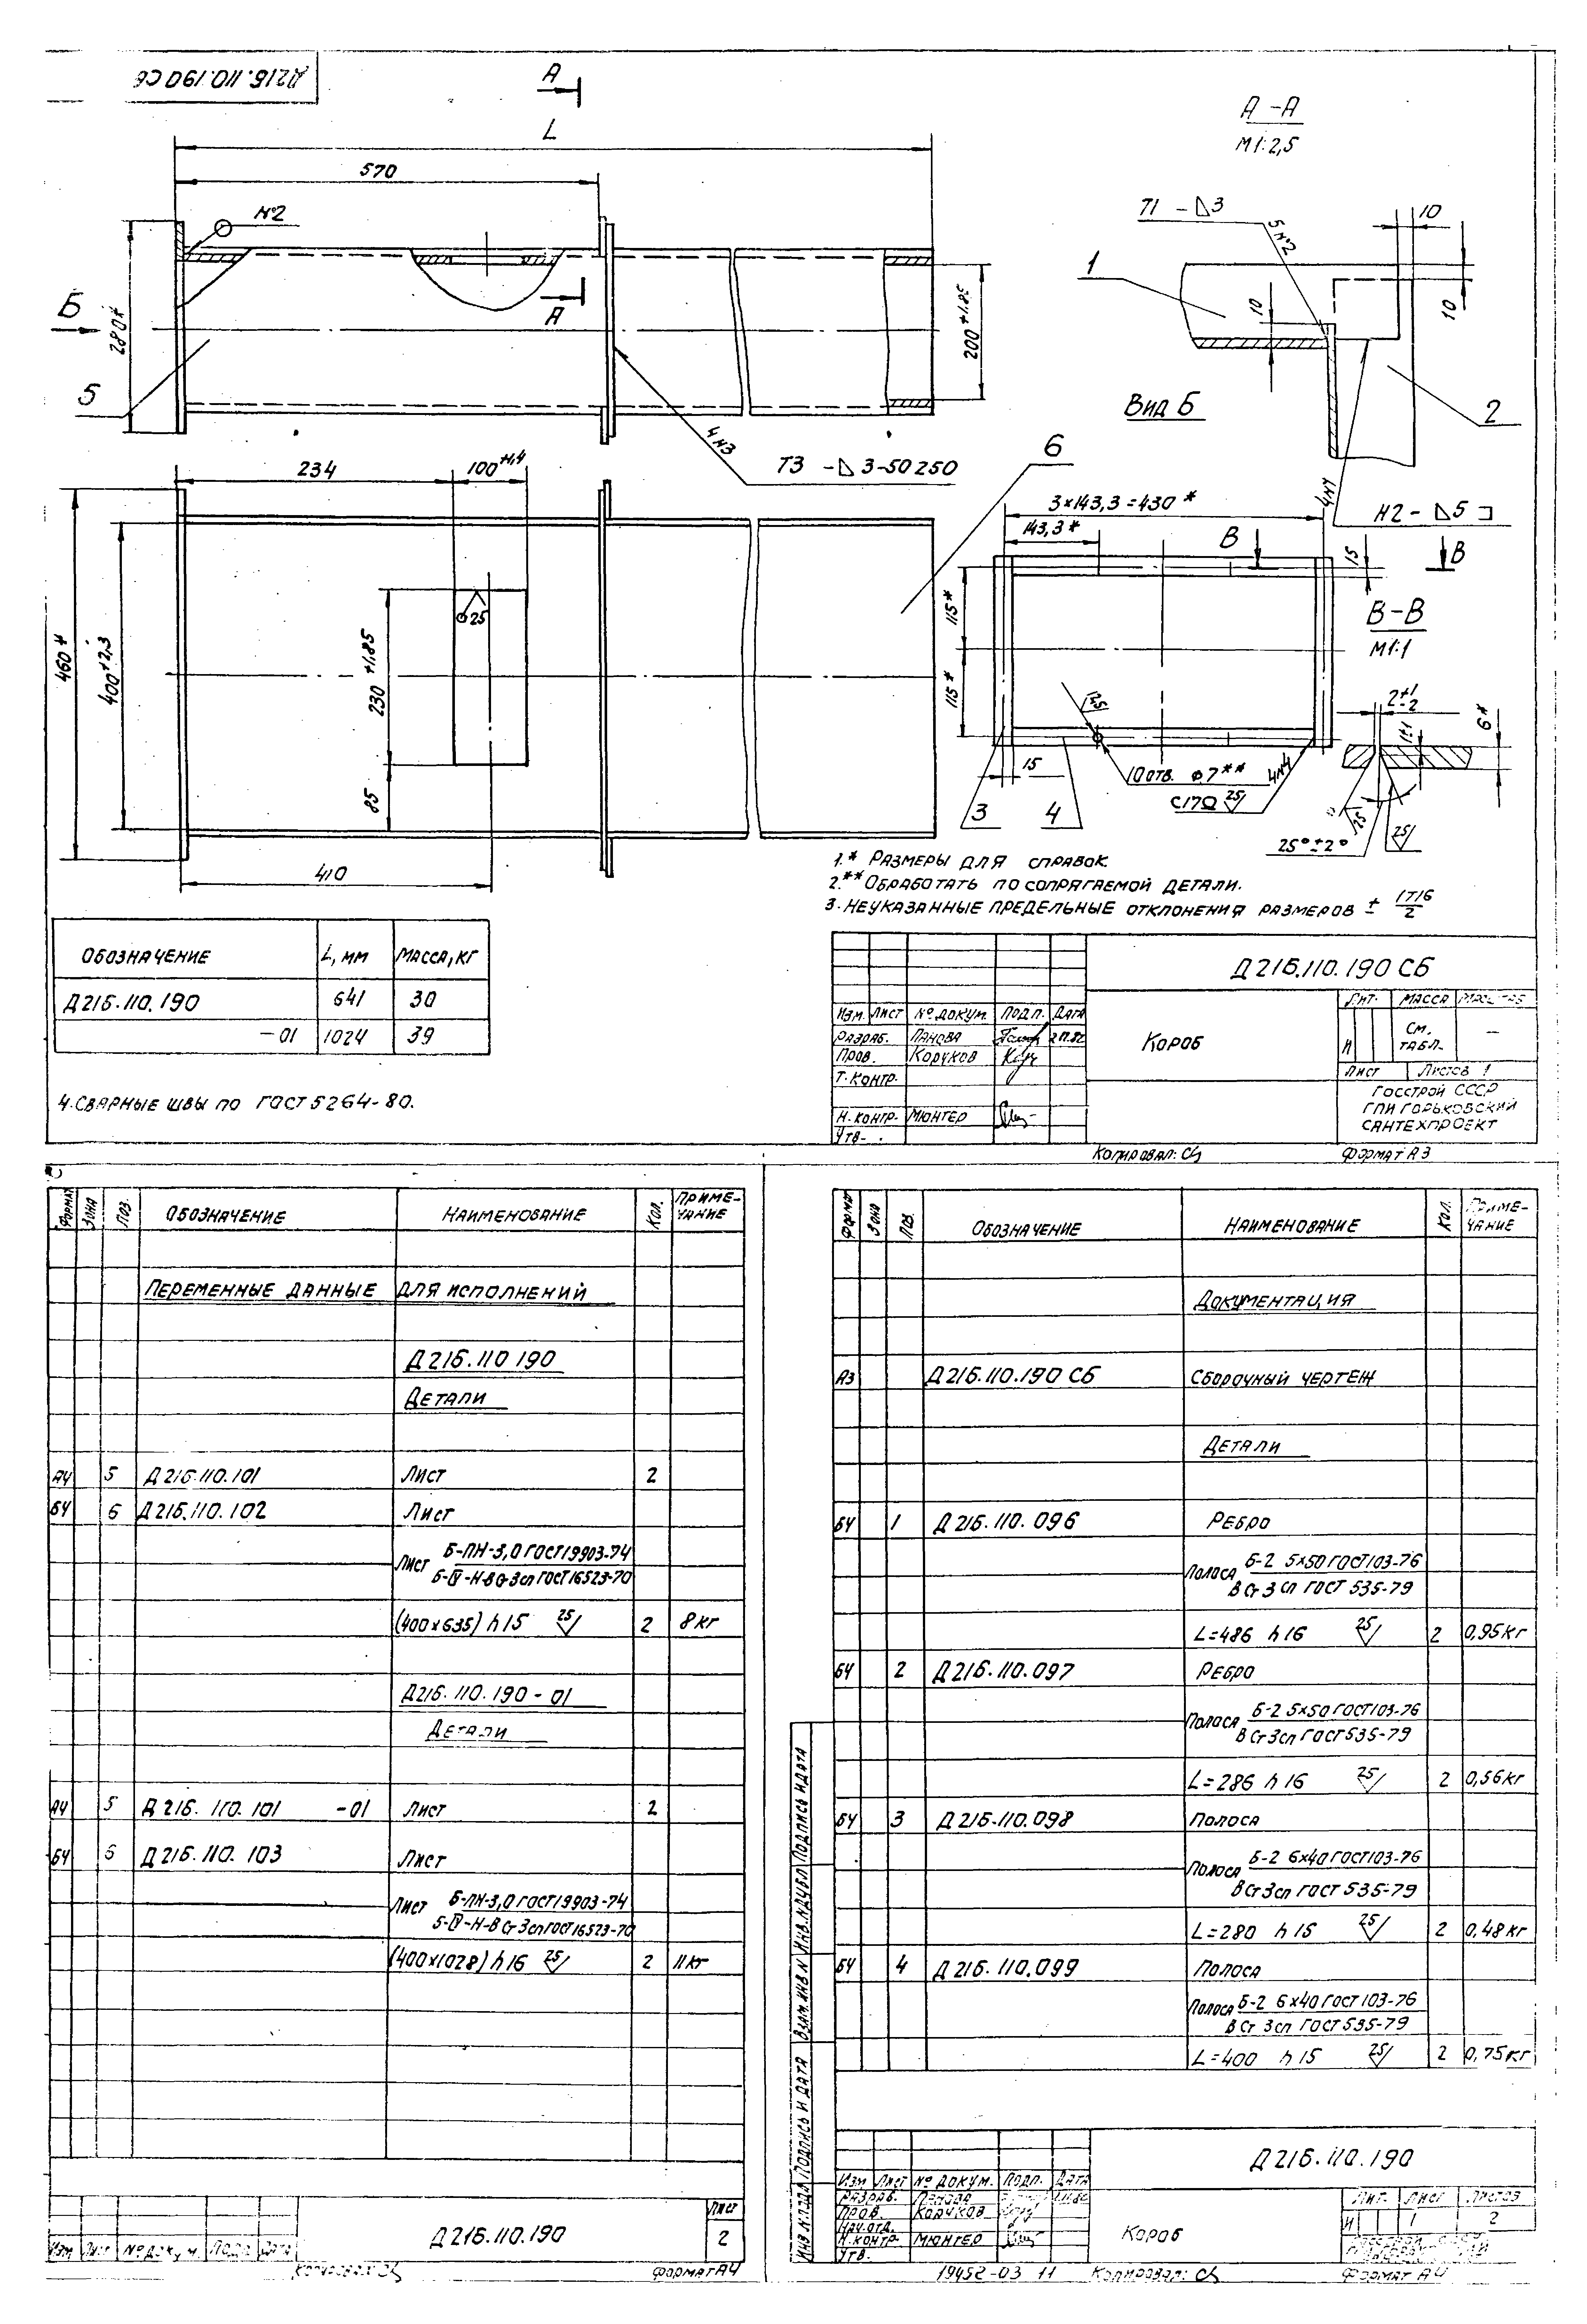 Д21Б.110.190 СБ
А
L
570
№2
Б
280*
5
А
200+1,85
4 №3
Т3 - ◺ 3-50 250
А-А
М1:2,5
Т1 - ◺ 3
5 №2
10
1
10
10
2
4№1
Н2 - ◺ 5 ⊐
234
100+1,4
6
460*
400+2,3
230+1,85
25
85
410
Вид Б
3×143,3=430*
143,3*
В
15
В
115*
115*
12,5
15
10 отв. ⌀7**
4№4
С17Ω 25
3
4
В-В
М1:1
2+1-2
1±1
6*
25
25
25°±2°
1.* Размеры для справок
2.** Обработать по сопрягаемой детали.
3. Неуказанные предельные отклонения размеров ± IT16/2
Обозначение L, мм Масса, кг
Д21Б.110.190 641 30
-01 1024 39
4. Сварные швы по ГОСТ 5264-80.
Д21Б.110.190 СБ
Изм. Лист № докум. Подп. Дата
Разраб. Панова
Пров. Коруков
Т.контр.
Н.контр. Мюнтер
Утв.
Короб
Лит. Масса Масштаб
И См. табл. -
Лист Листов 1
Госстрой СССР
ГПИ Горьковский
Сантехпроект
Копировал: Формат А3
Формат Зона Поз. Обозначение Наименование Кол. Примечание
Переменные данные для исполнений
Д21Б.110 190
Детали
А4 5 Д21Б.110.101 Лист 2
БЧ 6 Д21Б.110.102 Лист
Лист Б-ПН-3,0 ГОСТ19903-74
Б-IV-Н-В Ст 3сп ГОСТ16523-70
(400×635) h15 25 2 8 кг
Д21Б.110.190-01
Детали
А4 5 Д21Б.110.101 -01 Лист 2
БЧ 6 Д21Б.110.103 Лист
Лист Б-ПН-3,0 ГОСТ19903-74
Б-IV-Н-В Ст 3сп ГОСТ16523-70
(400×1028) h16 25 2 11 кг
Изм Лист № докум. Подп. Дата
Д21Б.110.190
Лист
2
Копировал: Формат А4
Формат Зона Поз. Обозначение Наименование Кол. Примечание
Документация
А3 Д21Б.110.190 СБ Сборочный чертеж
Детали
БЧ 1 Д21Б.110.096 Ребро
Полоса Б-2 5×50 ГОСТ103-76
В Ст 3 сп ГОСТ 535-79
L=486 h16 25 2 0,95кг
БЧ 2 Д21Б.110.097 Ребро
Полоса Б-2 5×50 ГОСТ103-76
В Ст 3сп ГОСТ535-79
L=286 h16 25 2 0,56кг
БЧ 3 Д21Б.110.098 Полоса
Полоса Б-2 6×40 ГОСТ103-76
В Ст 3сп ГОСТ 535-79
L=280 h15 25 2 0,48кг
БЧ 4 Д21Б.110.099 Полоса
Полоса Б-2 6×40 ГОСТ 103-76
В Ст 3сп ГОСТ 535-79
L=400 h15 25 2 0,75кг
Инв.№подл Подпись и дата Взам.инв№ Инв.№дубл Подпись и дата
Д21Б.110.190
Изм Лист № докум. Подп. Дата
Разраб. Панова
Пров. Коруков
Нач.отд.
Н.контр. Мюнтер
Утв.
Короб
Лит. Лист Листов
И 1 2
19452-03 11 Копировал: Формат А4